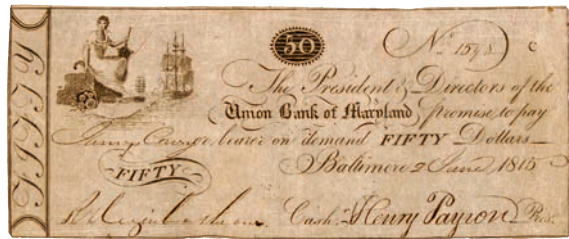 FIFTY
50
No. 1598 C
The President & Directors of the
Union Bank of Maryland promise to pay
or bearer on demand FIFTY Dollars
Baltimore 2 June 1815
FIFTY
Cash. Henry Payson Pres.